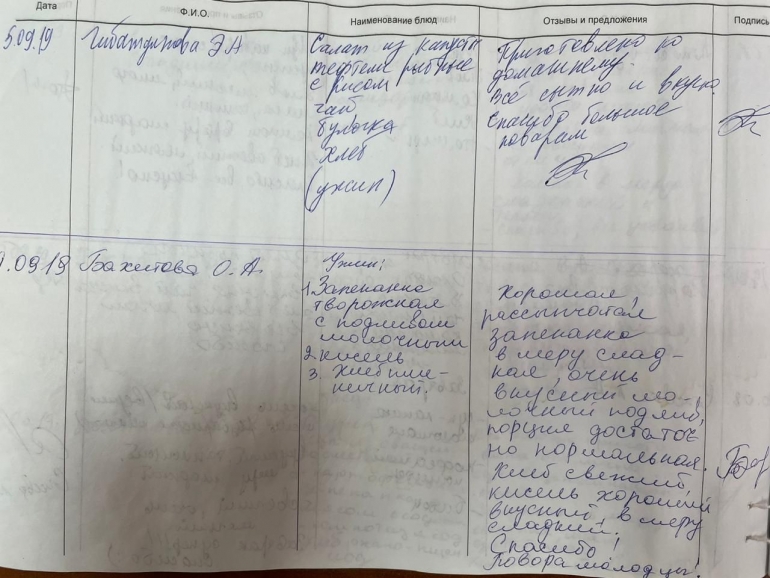 Дата
Ф.И.О.
Наименование блюд
Отзывы и предложения
Подпись
5.09.19
Гибатдинова Э А
Салат из капусты
тефтели рыбные
с рисом
чай
булочка
хлеб
(ужин)
Приготовлено по
домашнему.
Всё сытно и вкусно
Спасибо большое
поварам
.09.19
Бахитова О. А.
Ужин:
1. Запеканка
творожная
с подливом
молочным
2. кисель
3. Хлеб пше-
ничный.
Хорошая,
рассыпчатая
запеканка
в меру слад-
кая, очень
вкусный мо-
лочный подлив,
порция достаточ
но нормальная.
Хлеб свежий,
кисель хороший
вкусный, в меру
сладкий.
Спасибо!
Повара молодцы!